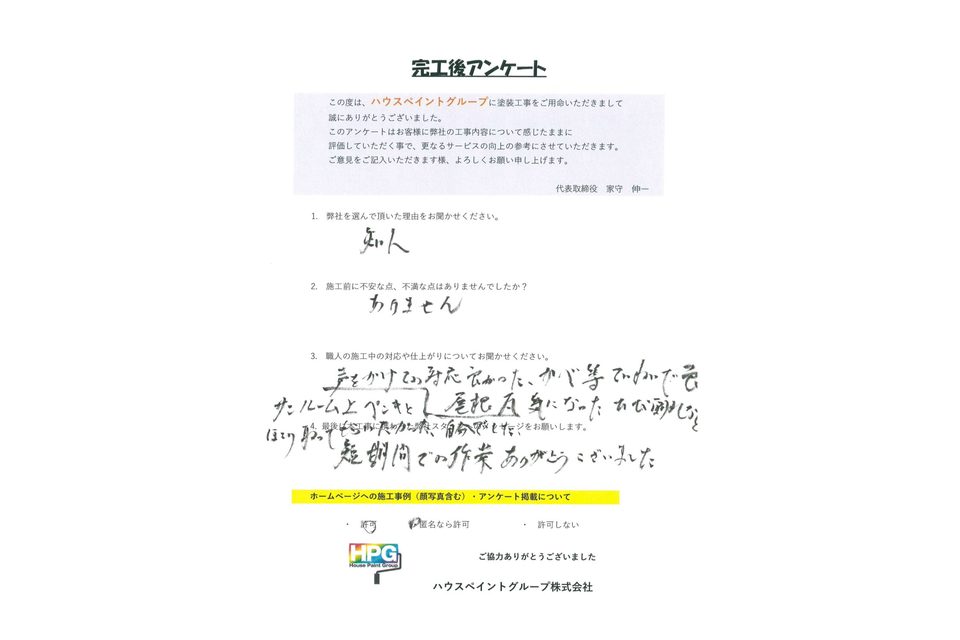 完工後アンケート
この度は、ハウスペイントグループに塗装工事をご用命いただきまして
誠にありがとうございました。
このアンケートはお客様に弊社の工事内容について感じたままに
評価していただく事で、更なるサービスの向上の参考にさせていただきます。
ご意見をご記入いただきます様、よろしくお願い申し上げます。
代表取締役 家守 伸一
1. 弊社を選んで頂いた理由をお聞かせください。
知人
2. 施工前に不安な点、不満な点はありませんでしたか?
ありません
3. 職人の施工中の対応や仕上がりについてお聞かせください。
声をかけての対応良かった、かべ等ていねいで
サンルーム上ペンキと 屋根瓦 気になった
4. 最後に メッセージをお願いします。
ほこり取って
短期間での作業ありがとうございました
ホームページへの施工事例(顔写真含む)・アンケート掲載について
・ 許可 ・ 匿名なら許可 ・ 許可しない
HPG
House Paint Group
ご協力ありがとうございました
ハウスペイントグループ株式会社